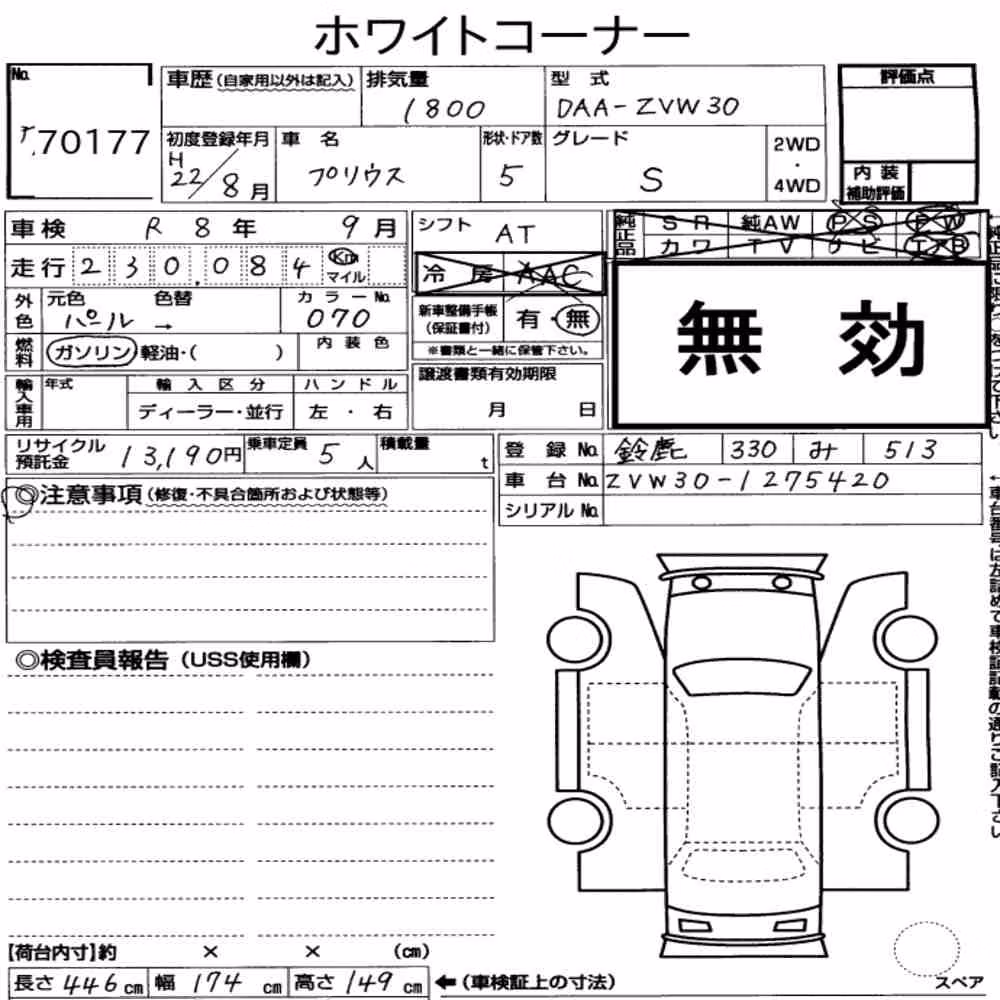 ホワイトコーナー
No. 70177
車歴(自家用以外は記入) 排気量 1800 型式 DAA-ZVW30 評価点
初度登録年月 H22/8月 車名 プリウス 形状・ドア数 5 グレード S 2WD・4WD
内装補助評価
車検 R8年 9月 シフト AT 純正品 SR 純AW PS PW
カワ TV ナビ エアB
走行 230,084 Km マイル 冷房 AAC
外色 元色 パール 色替 → カラーNo. 070
新車整備手帳(保証書付) 有・無
※書類と一緒に保管下さい。
無効
燃料 ガソリン・軽油・( ) 内装色
輸入車用 年式 輸入区分 ディーラー・並行 ハンドル 左・右
譲渡書類有効期限 月 日
リサイクル預託金 13,190円 乗車定員 5人 積載量 t
登録No. 鈴鹿 330 み 513
車台No. ZVW30-1275420
シリアルNo.
◎注意事項(修復・不具合箇所および状態等)
◎検査員報告(USS使用欄)
←車台番号は左詰めで車検証記載の通りご記入下さい
【荷台内寸】約 × × (cm)
長さ 446cm 幅 174cm 高さ 149cm ←(車検証上の寸法)
スペア